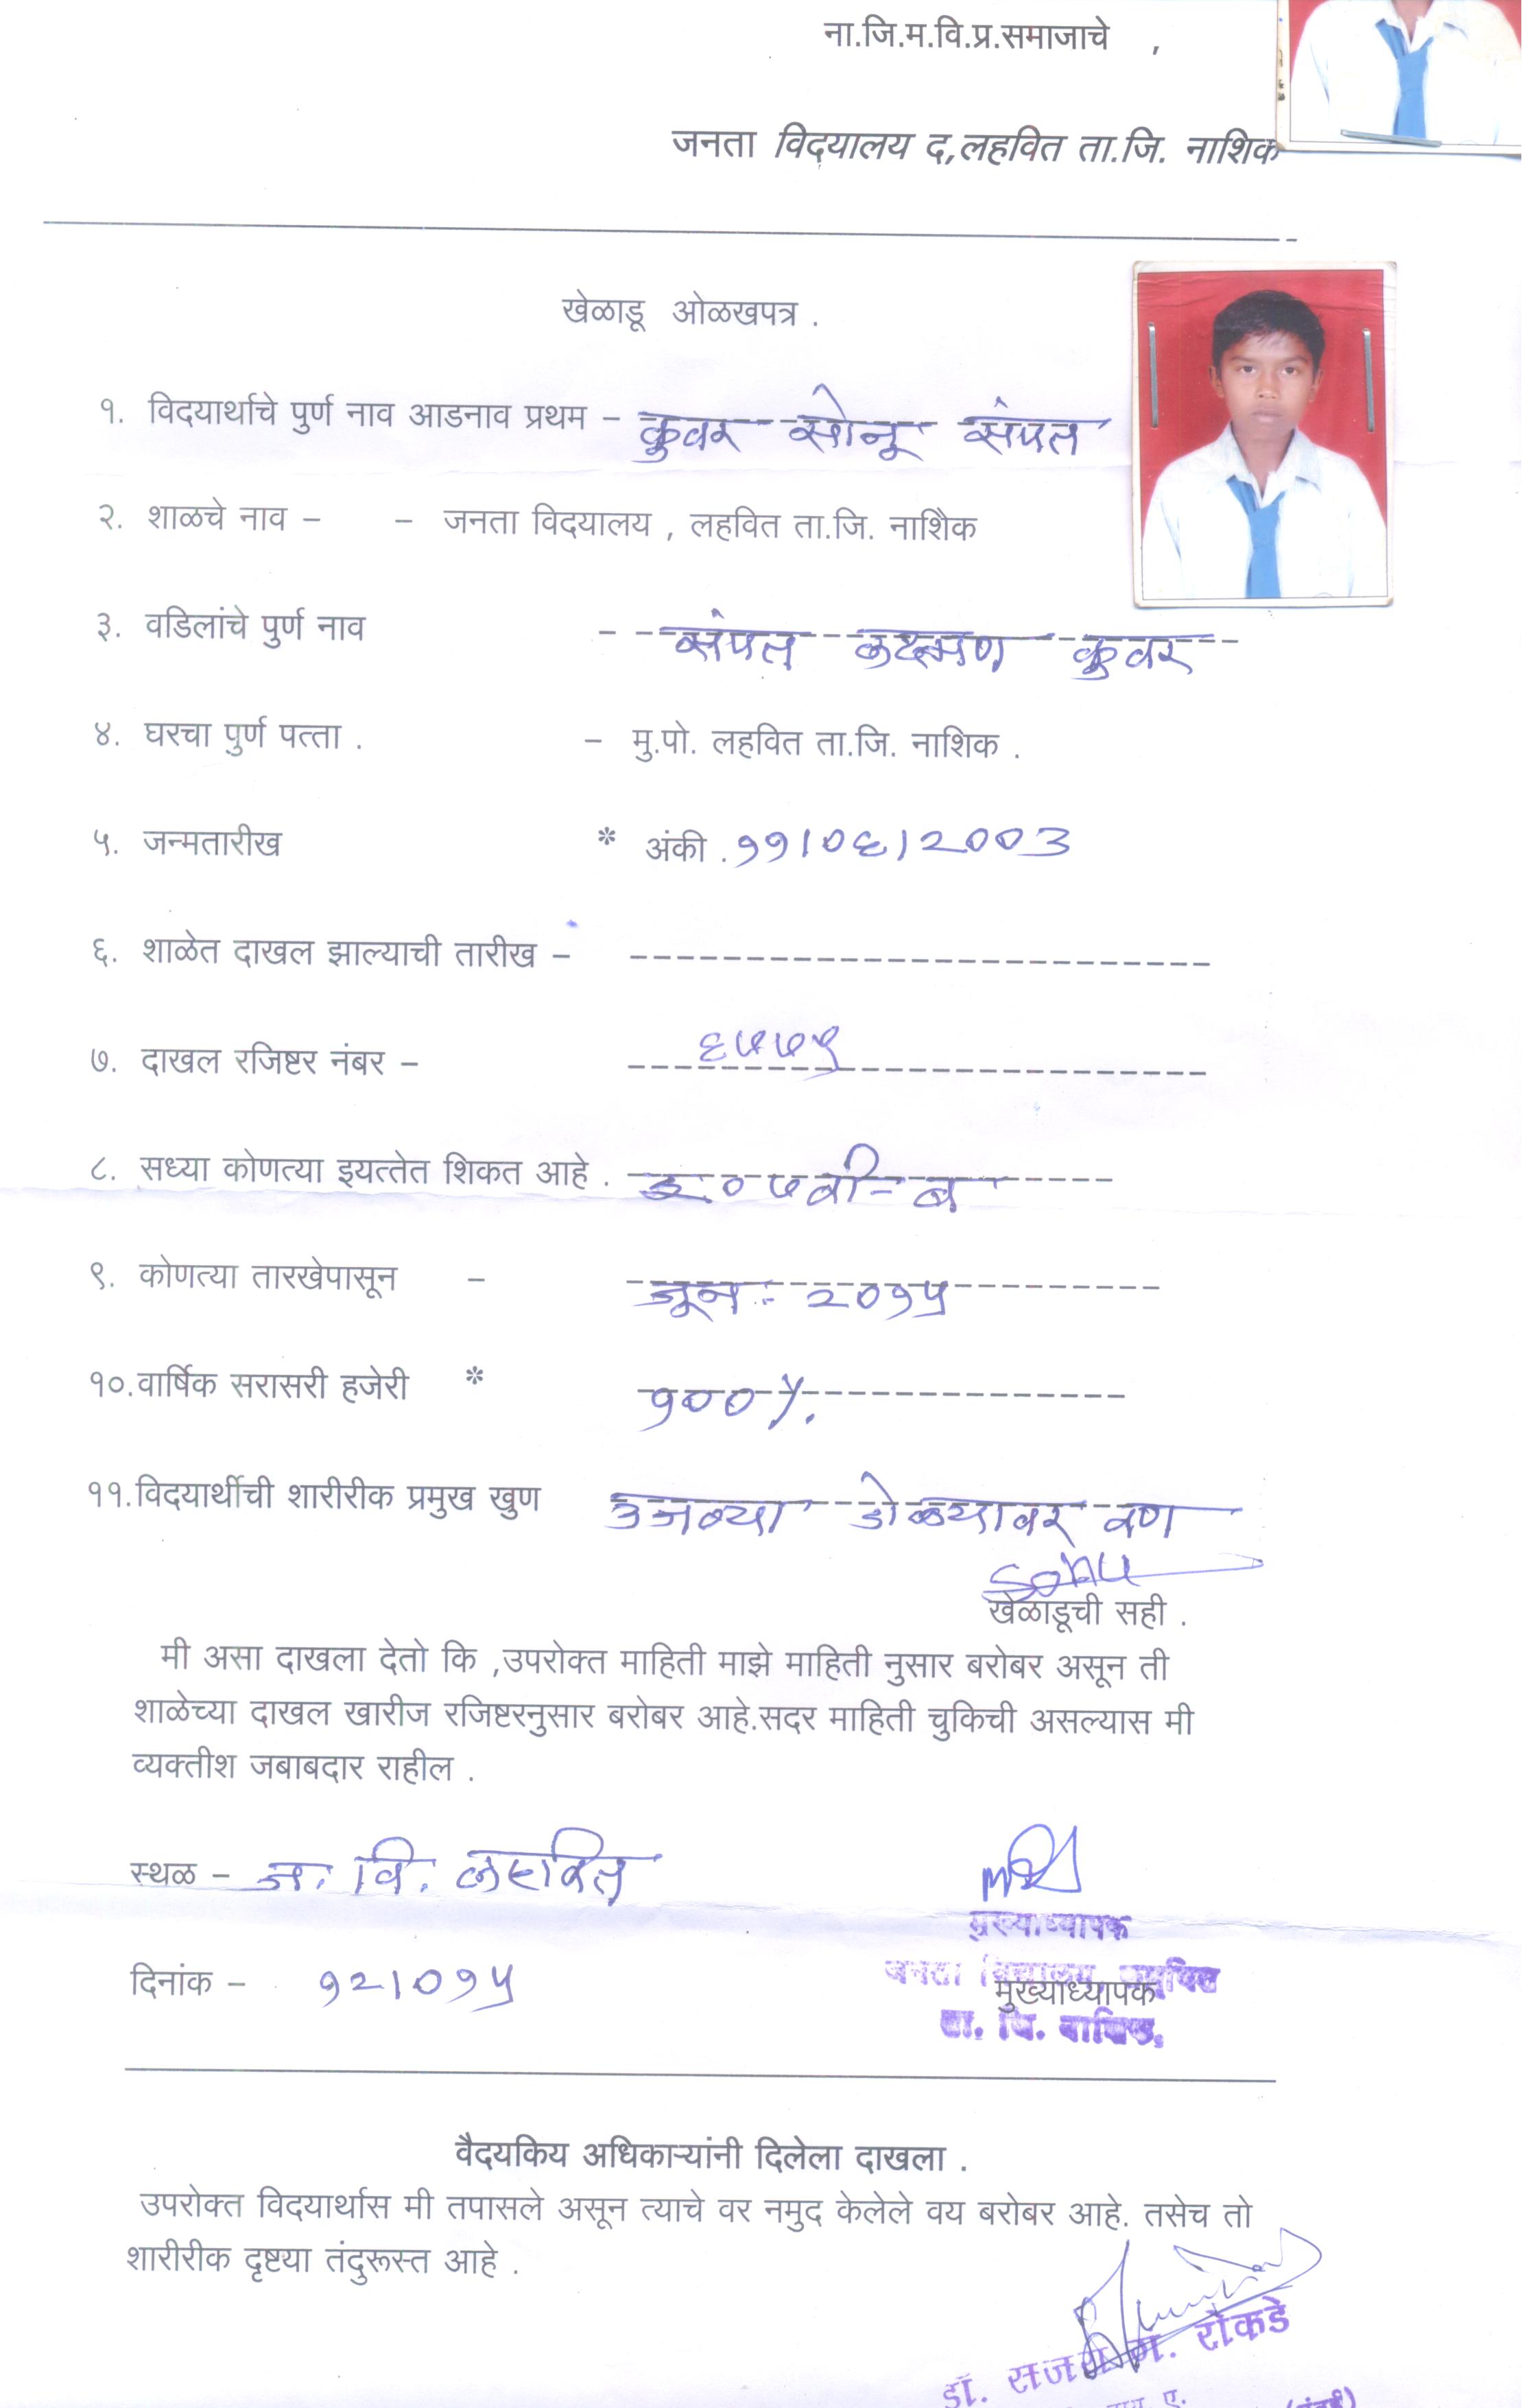 ना.जि.म.वि.प्र.समाजाचे ,
जनता विदयालय द,लहवित ता.जि. नाशिक
खेळाडू ओळखपत्र .
१. विदयार्थाचे पुर्ण नाव आडनाव प्रथम – कुवर सोनू संपत
२. शाळचे नाव – – जनता विदयालय , लहवित ता.जि. नाशिक
३. वडिलांचे पुर्ण नाव – संपत लक्ष्मण कुवर
४. घरचा पुर्ण पत्ता . – मु.पो. लहवित ता.जि. नाशिक .
५. जन्मतारीख * अंकी . ११/०६/२००३
६. शाळेत दाखल झाल्याची तारीख –
७. दाखल रजिष्टर नंबर – ६७७५
८. सध्या कोणत्या इयत्तेत शिकत आहे . इ.० ७वी-ब
९. कोणत्या तारखेपासून – जून :- २०१५
१०.वार्षिक सरासरी हजेरी * १००%.
११.विदयार्थीची शारीरीक प्रमुख खुण उजव्या डोळ्यावर वण
Sonu
खेळाडूची सही .
मी असा दाखला देतो कि ,उपरोक्त माहिती माझे माहिती नुसार बरोबर असून ती
शाळेच्या दाखल खारीज रजिष्टरनुसार बरोबर आहे.सदर माहिती चुकिची असल्यास मी
व्यक्तीश जबाबदार राहील .
स्थळ – ज. वि. लहवित
मुख्याध्यापक
दिनांक – १२/०१५
जनता विद्यालय, लहवित
मुख्याध्यापक
ता. जि. नाशिक.
वैदयकिय अधिकाऱ्यांनी दिलेला दाखला .
उपरोक्त विदयार्थास मी तपासले असून त्याचे वर नमुद केलेले वय बरोबर आहे. तसेच तो
शारीरीक दृष्टया तंदुरूस्त आहे .
डॉ. संजय म. रोकडे